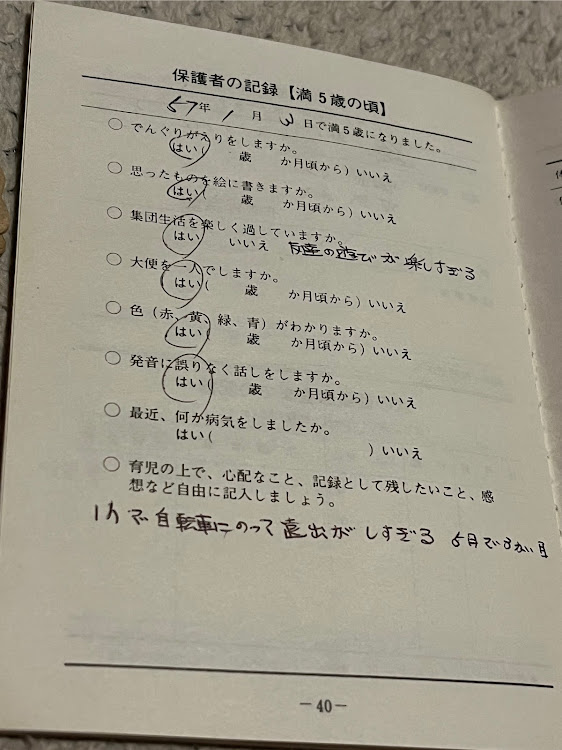 保護者の記録【満5歳の頃】
57年 1月 3日で満5歳になりました。
○ でんぐりがえりをしますか。
はい( 歳 か月頃から) いいえ
○ 思ったものを絵に書きますか。
はい( 歳 か月頃から) いいえ
○ 集団生活を楽しく過していますか。
はい いいえ 友達の遊びが楽しすぎる
○ 大便を一人でしますか。
はい( 歳 か月頃から) いいえ
○ 色(赤、黄、緑、青)がわかりますか。
はい( 歳 か月頃から) いいえ
○ 発音に誤りなく話しをしますか。
はい( 歳 か月頃から) いいえ
○ 最近、何か病気をしましたか。
はい( ) いいえ
○ 育児の上で、心配なこと、記録として残したいこと、感
想など自由に記入しましょう。
自転車にのって遠出がしすぎる
−40−